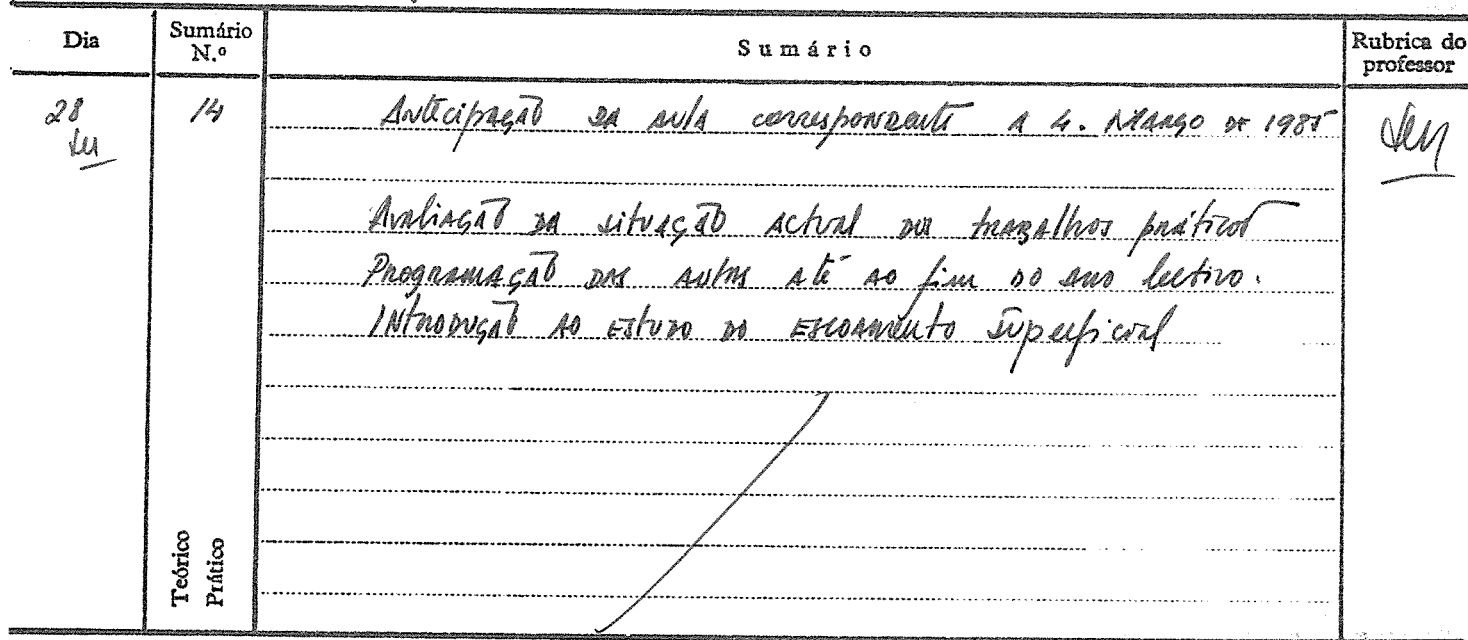 Dia
Sumário N.º
Sumário
Rubrica do professor
28
14
Antecipação da aula correspondente a 4. Março de 1985
Avaliação da situação actual dos trabalhos práticos
Programação das aulas até ao fim do ano lectivo.
Introdução ao estudo do escoamento superficial
Teórico
Prático